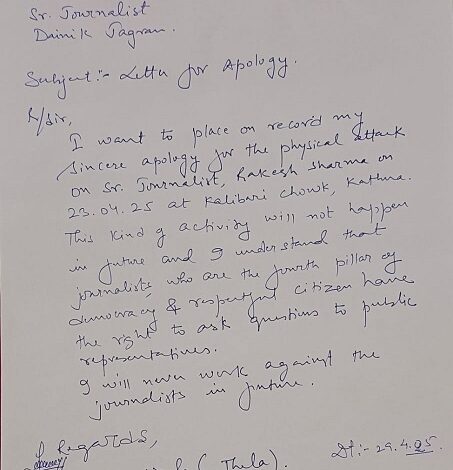 Sr. Journalist
Dainik Jagran.
Subject:- Letter for Apology.
R/Sir,
I want to place on record my
sincere apology for the physical attack
on Sr. Journalist, Rakesh Sharma on
23.04.25 at Kalibari Chowk, Kathua.
This kind of activity will not happen
in future and I understand that
journalists, who are the fourth pillar of
democracy & respectful citizen have
the right to ask questions to public
representatives.
I will never work against the
journalists in future.
Regards,
(Thela).
Dt:- 29.4.25.